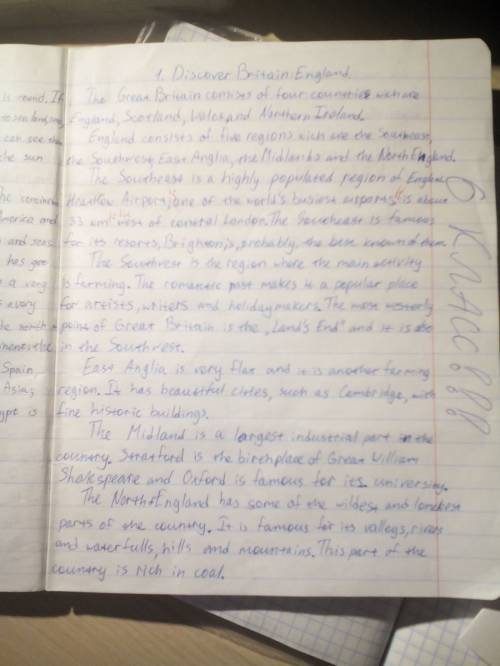 1. Discover Britain: England
The Great Britain consists of four countries wich are
England, Scotland, Wales and Northern Ireland.
England consists of five regions wich are the Southeast,
the Southwest, East Anglia, the Midlands and the North England.
The Southeast is a highly populated region of England
Heatlow Airport, one of the world's busiest airports is about
33 km west of central London. The Southeast is famous
for its resorts, Brighton is, probably, the best known of them
The Southwest is the region where the main activity
is farming. The romantic past makes it a popular place
for artists, writers and holidaymakers. The most westerly
point of Great Britain is the „Land's End" and it is also
in the Southwest.
East Anglia is very flat and it is another farming
region. It has beautiful cities, such as Cambridge, with
fine historic buildings.
The Midland is a largest industrial part in the
country. Stratford is the birthplace of Great William
Shakespeare and Oxford is famous for its university.
The North England has some of the wildest and loneliest
parts of the country. It is famous for its valleys, rivers
and waterfulls, hills and mountains. This part of the
country is rich in coal.
6 класс!!!
is round. If
can see the
the sun
America and
and seas
has
a very
Spain,
Asia,
is